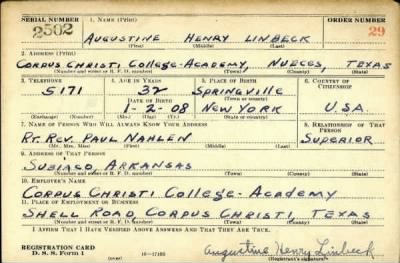 SERIAL NUMBER 1. NAME (Print) ORDER NUMBER
2502 AUGUSTINE HENRY LINBECK 29
(First) (Middle) (Last)
2. ADDRESS (Print)
CORPUS CHRISTI COLLEGE-ACADEMY, NUECES, TEXAS
(Number and street or R. F. D. number) (Town) (County) (State)
3. TELEPHONE 4. AGE IN YEARS 5. PLACE OF BIRTH 6. COUNTRY OF CITIZENSHIP
5171 32 SPRINGVILLE
DATE OF BIRTH (Town or county)
1-2-08 NEW YORK U.S.A.
(Exchange) (Number) (Mo.) (Day) (Yr.) (State or country)
7. NAME OF PERSON WHO WILL ALWAYS KNOW YOUR ADDRESS 8. RELATIONSHIP OF THAT PERSON
RT. REV. PAUL NAHLEN SUPERIOR
(Mr., Mrs., Miss) (First) (Middle) (Last)
9. ADDRESS OF THAT PERSON
SUBIACO, ARKANSAS
(Number and street or R. F. D. number) (Town) (County) (State)
10. EMPLOYER'S NAME
CORPUS CHRISTI COLLEGE-ACADEMY
11. PLACE OF EMPLOYMENT OR BUSINESS
SHELL ROAD, CORPUS CHRISTI, TEXAS
(Number and street or R. F. D. number) (Town) (County) (State)
I AFFIRM THAT I HAVE VERIFIED ABOVE ANSWERS AND THAT THEY ARE TRUE.
REGISTRATION CARD
D. S. S. Form 1 16-17105 Augustine Henry Linbeck
(Registrant's signature)